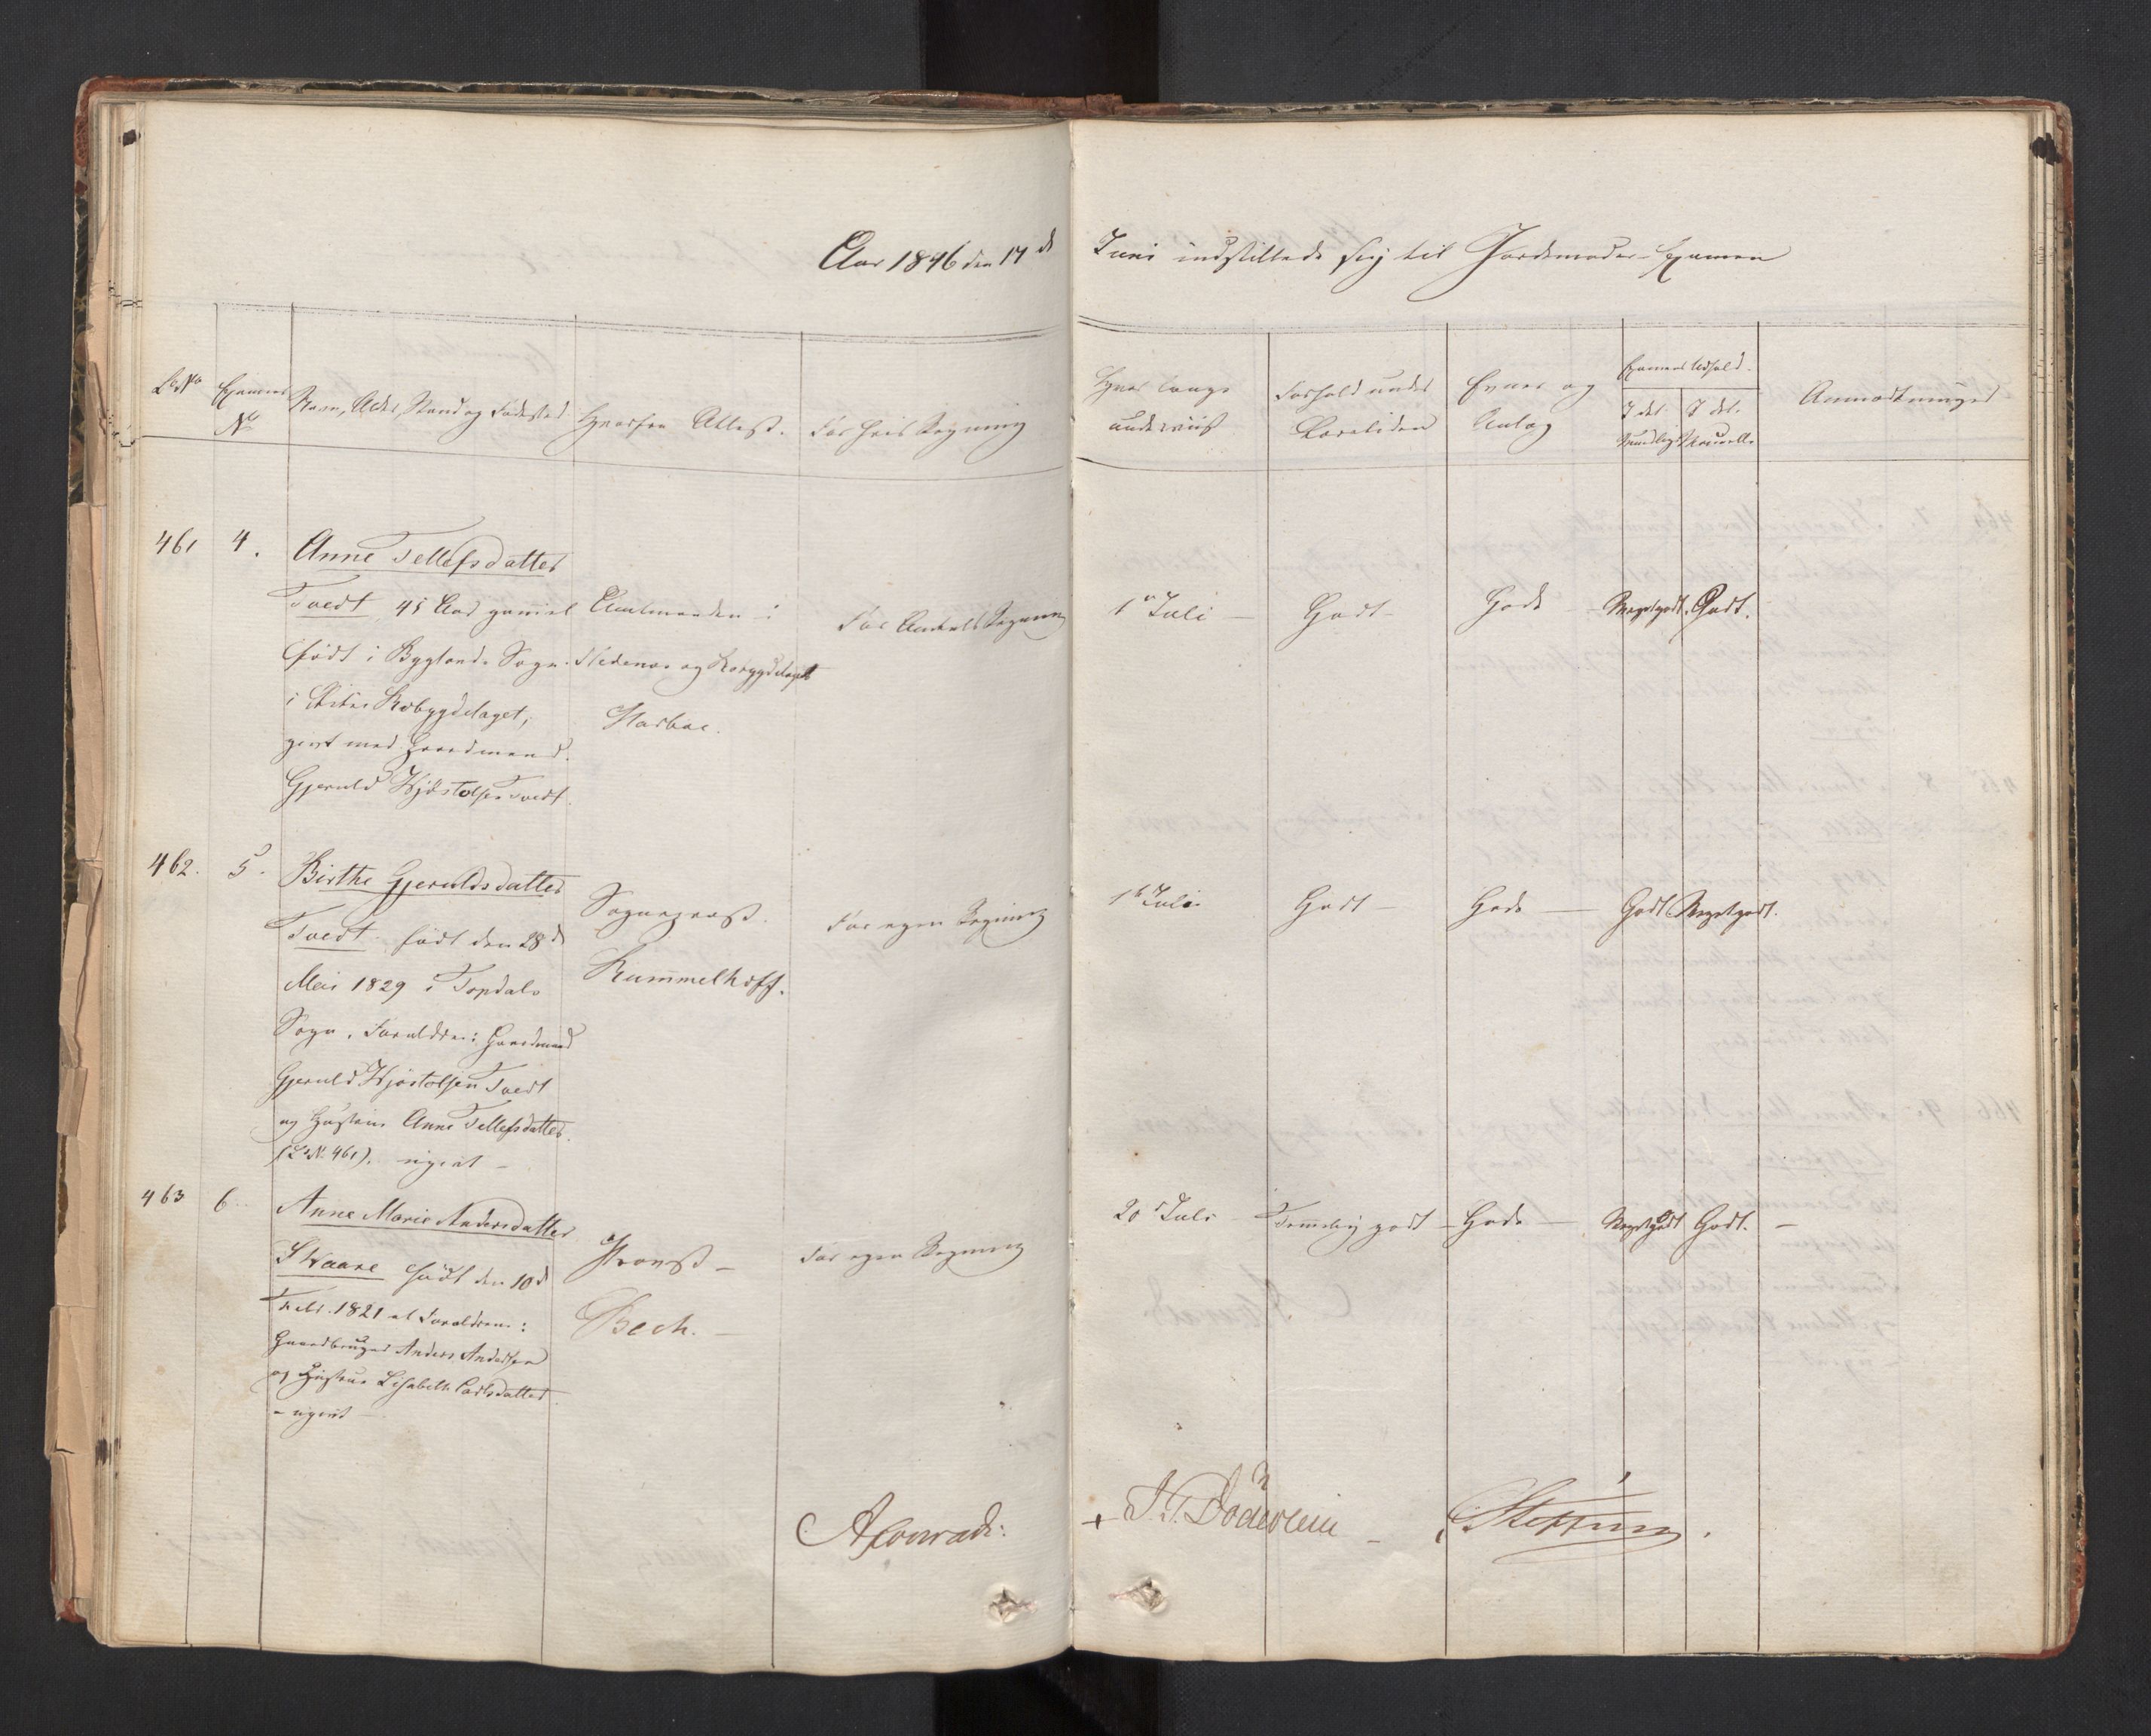 Aar 1846 den 17de Juni indstillede sig til Jordemoder-Examen
LbNo
Examens No
Navn, Alder, Stand og Fødested
Hvorfra Attest.
For hvis Regning
Hvor længe underviist
Forhold under Læretiden
Evner og Anlæg
Examens Udfald.
I det Mundlige
I det Skriftlige
Anmærkninger
461 4. Anne Tellefsdatter
Tvedt, 45 Aar gammel
født i Byglands Sogn
i Robygdelaget,
givt med Gaardmand
Gjeruld Hjøstolsen Tvedt.
Amtmanden i
Nedenes og Robygdelaget
Harboe.
For Amtets Regning
1 Juli
Godt
Gode
Meget godt.
Godt.
462. 5. Birthe Gjeruldsdatter
Tvedt født den 28de
Mai 1829 i Topdals
Sogn. Forældre: Gaardmand
Gjeruld Hjøstolsen Tvedt
og Hustru Anne Tellefsdatter.
(LbNo 461). ugivt –
Sognepræst
Rummelhoff.
For egen Regning
1 Juli
Godt –
Gode –
Godt
Meget godt.
463 6. Anne Marie Andersdatter
Skaare født den 10de
Febr. 1821 af Forældrene:
Gaardbruger Anders Andersen
og Hustrue Lisabeth Carlsdatter
– ugivt –
Provst –
Bech. –
For egen Regning
20 Juli
Temmelig godt –
Gode –
Meget godt
Godt. –
A Conradi.
J. T. Döderlein –
Steffens.